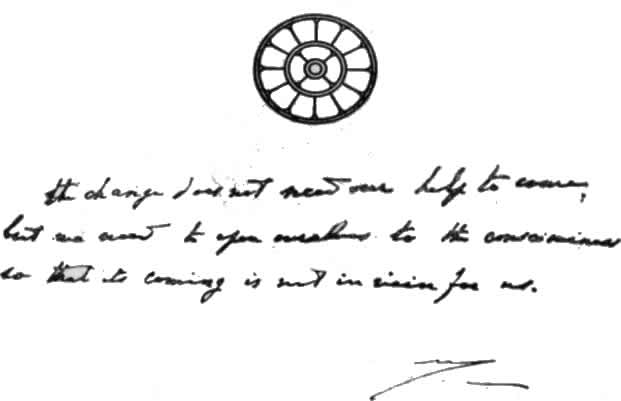 the change does not need our help to come,
but we need to open ourselves to the consciousness
so that its coming is not in vain for us.